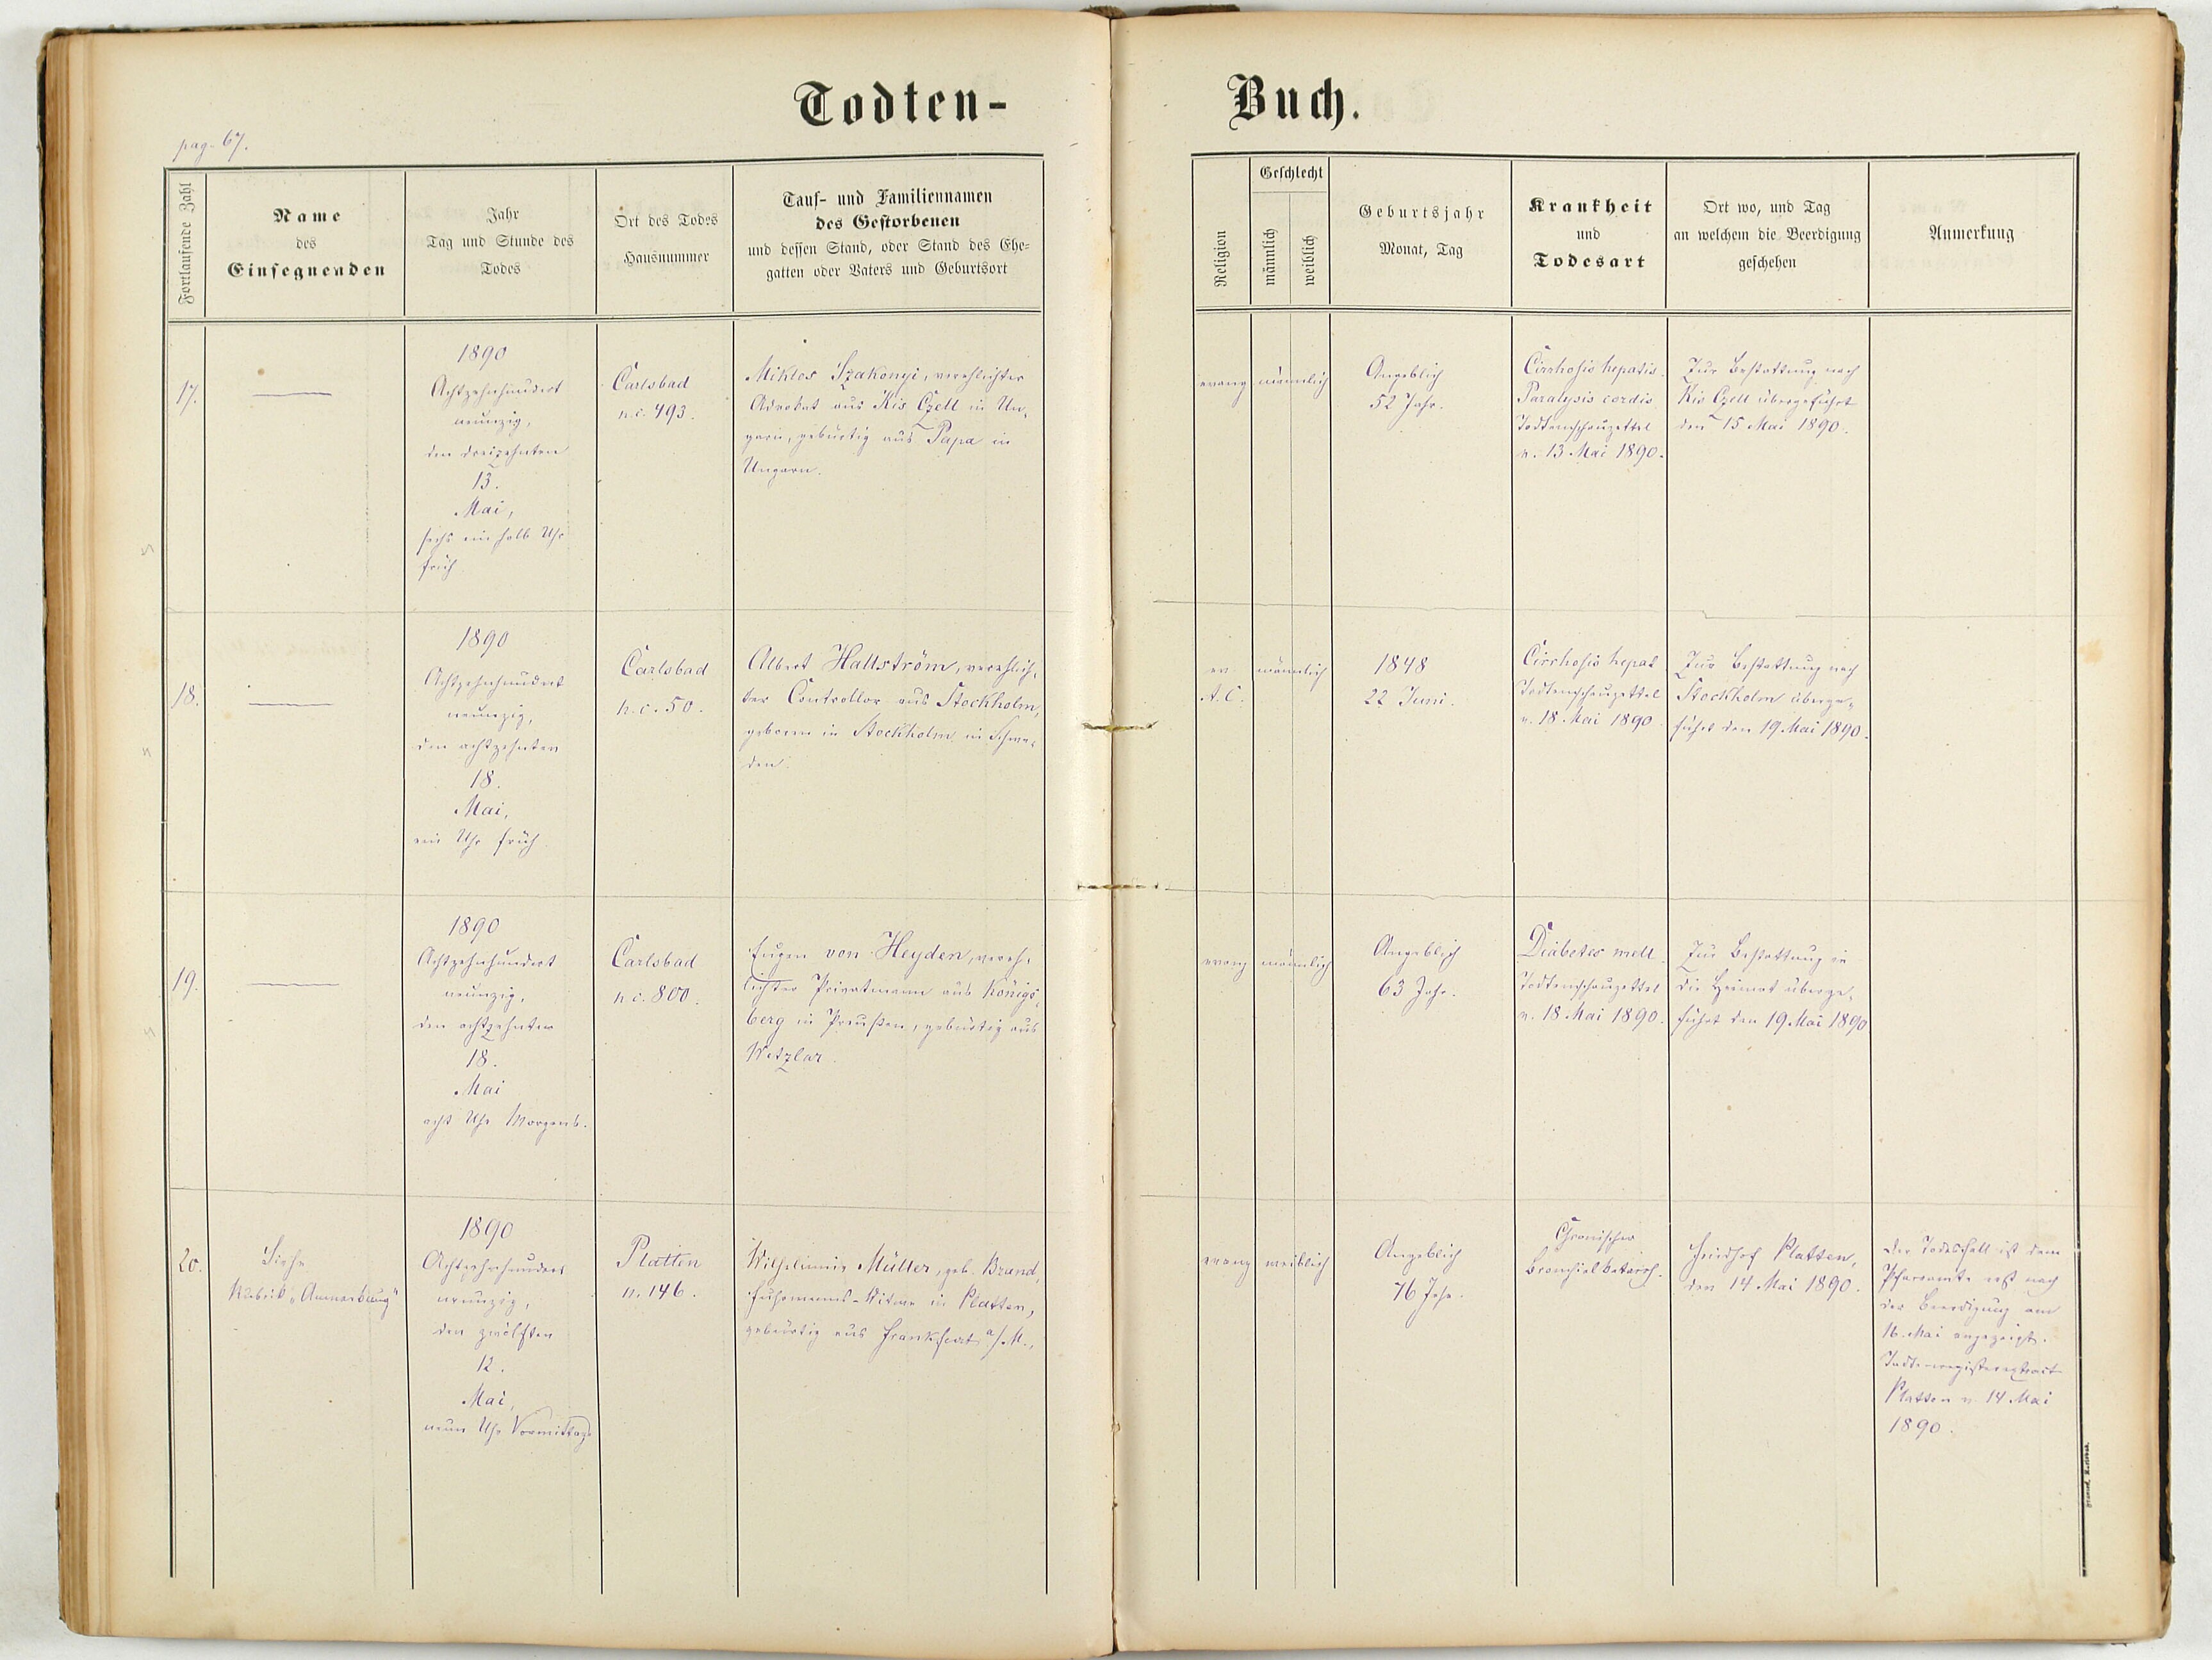 Todten-
Buch.
pag. 67.
Fortlaufende Zahl
Name
des
Einsegnenden
Jahr
Tag und Stunde des
Todes
Ort des Todes
Hausnummer
Tauf- und Familiennamen
des Gestorbenen
und dessen Stand, oder Stand des Ehe-
gatten oder Vaters und Geburtsort
Religion
Geschlecht
männlich
weiblich
Geburtsjahr
Monat, Tag
Krankheit
und
Todesart
Ort wo, und Tag
an welchem die Beerdigung
geschehen
Anmerkung
17.
1890
Achtzehnhundert
neunzig,
den dreizehnten
13.
Mai,
sechs ein halb Uhr
früh
Carlsbad
n.c. 493.
Miklos Szakonyi, verehlichter
Advokat aus Kis Czell in Un-
garn, gebürtig aus Papa in
Ungarn.
evang
männlich
Angeblich
52 Jahr.
Cirrhosis hepatis.
Paralysis cordis
Todtenschauzettel
v. 13 Mai 1890.
Zur Bestattung nach
Kis Czell übergeführt
den 15 Mai 1890.
18.
1890
Achtzehnhundert
neunzig,
den achtzehnten
18.
Mai,
ein Uhr früh
Carlsbad
n.c. 50.
Albert Hallström, verehlich-
ter Controllor aus Stockholm,
geboren in Stockholm in Schwe-
den.
ev
A.C.
männlich
1848
22 Juni.
Cirrhosis hepat
Todtenschauzettel
v. 18 Mai 1890
Zur Bestattung nach
Stockholm überge-
führt den 19 Mai 1890.
19.
1890
Achtzehnhundert
neunzig,
den achtzehnten
18.
Mai
acht Uhr Morgens.
Carlsbad
n.c. 800.
Eugen von Heyden, vereh-
lichter Privatmann aus Königs-
berg in Preußen, gebürtig aus
Wetzlar.
evang
männlich
Angeblich
63 Jahr.
Diabetes mell.
Todtenschauzettel
v. 18 Mai 1890.
Zur Bestattung in
die Heimat überge-
führt den 19 Mai 1890
20.
Siehe
Rubrik „Anmerkung"
1890
Achtzehnhundert
neunzig,
den zwölften
12.
Mai,
neun Uhr Vormittags
Platten
n. 146.
Wilhelmine Müller, geb. Brand,
Fuhrmanns-Witwe in Platten,
gebürtig aus Frankfurt a/M.,
evang
weiblich
Angeblich
76 Jahr.
Chronischer
Bronchialkatarrh.
Friedhof Platten,
den 14 Mai 1890.
Der Todesfall ist dem
Pfarramte erst nach
der Beerdigung am
16. Mai angezeigt.
Todtenregisterextract
Platten v. 14 Mai
1890.